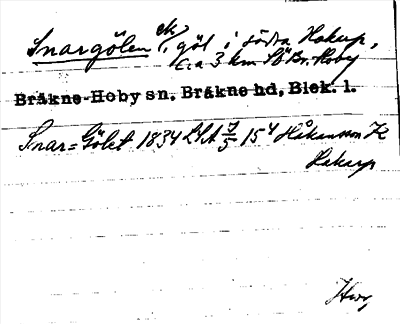 Snargölen ek/, göl i södra Hakarp,
c:a 3 km SÖ Br. Hoby
Bräkne-Hoby sn, Bräkne hd, Blek. l.
Snar=Gölet 1834 LSA 7/5 15⁴ Håkansson K
Hakarp